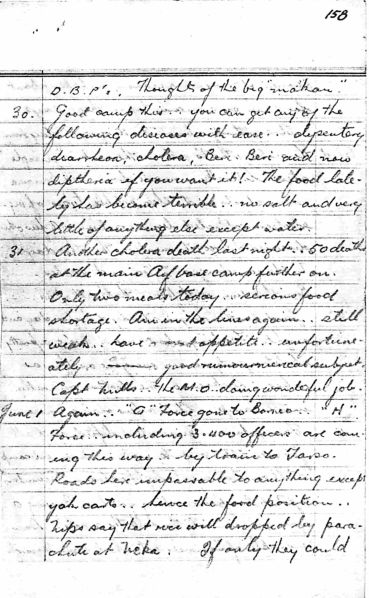 158
O.B.P's. Thoughts of the big "makan".
30. Good camp this .. you can get any of the
following diseases with ease .. dysentery
diarrhoea, cholera, Beri Beri and now
diptheria if you want it! The food late-
ly has become terrible .. no salt and very
little of anything else except water.
31 Another cholera death last night .. 50 deaths
at the main Aif base camp further on.
Only two meals today .. serious food
shortage. Am in the lines again .. still
weak .. have appetite .. unfortun-
ately good rumour
Capt Mills .. the M.O. doing wonderful job.
June 1 Again .. "G" Force goes to Borneo .. "H"
Force .. including 3.400 officers are com-
ing this way .. by train to Tarso.
Roads here impassable to anything except
yak carts .. hence the food position ..
Nips say that rice will dropped by para-
chute at Neka. If only they could